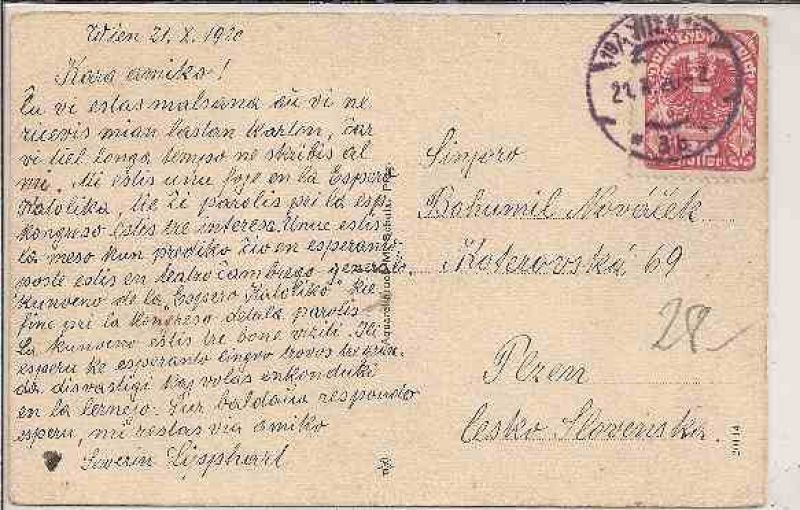 Wien 21. X. 1920
Kara amiko!
Ĉu vi estas malsana aŭ vi ne
ricevis mian lastan karton, ĉar
vi tiel longa tempo ne skribis al
mi. Mi estis unu foje en la Espero
Katolika, tie ĉi parolis pri la esp.
kongreso estis tre interesa. Unue estis
la meso kun prediko ĉio en esperanto
poste estis en teatroĉambrego generala
kunveno de la "Espero Katoliko" kie
fine pri la kongreso detala parolis.
La kunveno estis tre bone viziti. Mi
esperu ke esperanto lingvo trovos tre gran-
da disvastigi kaj volas enkonduki
en la lernejo. Ĝur baldaŭa respondo
esperu, mi restas via amiko
Severin Lipphart
Sinjoro
Bohumil Nováček
Koterovská 69
Plzen
Česko Slovenska.
28
WIEN
21. X. 20
* 3b *
2014